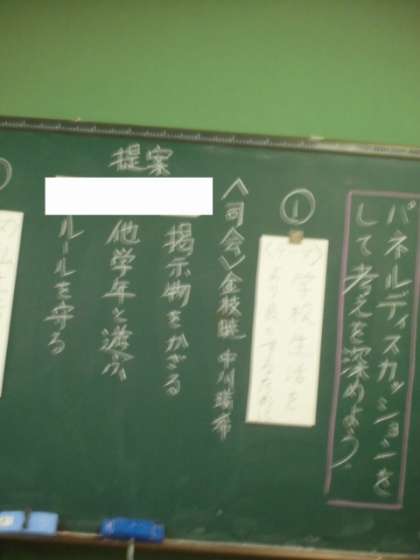 パネルディスカッションを
して考えを深めよう。
①
学校生活を
より良くするために
〈司会〉
提案
掲示物をかざる
他学年と遊ぶ
ルールを守る